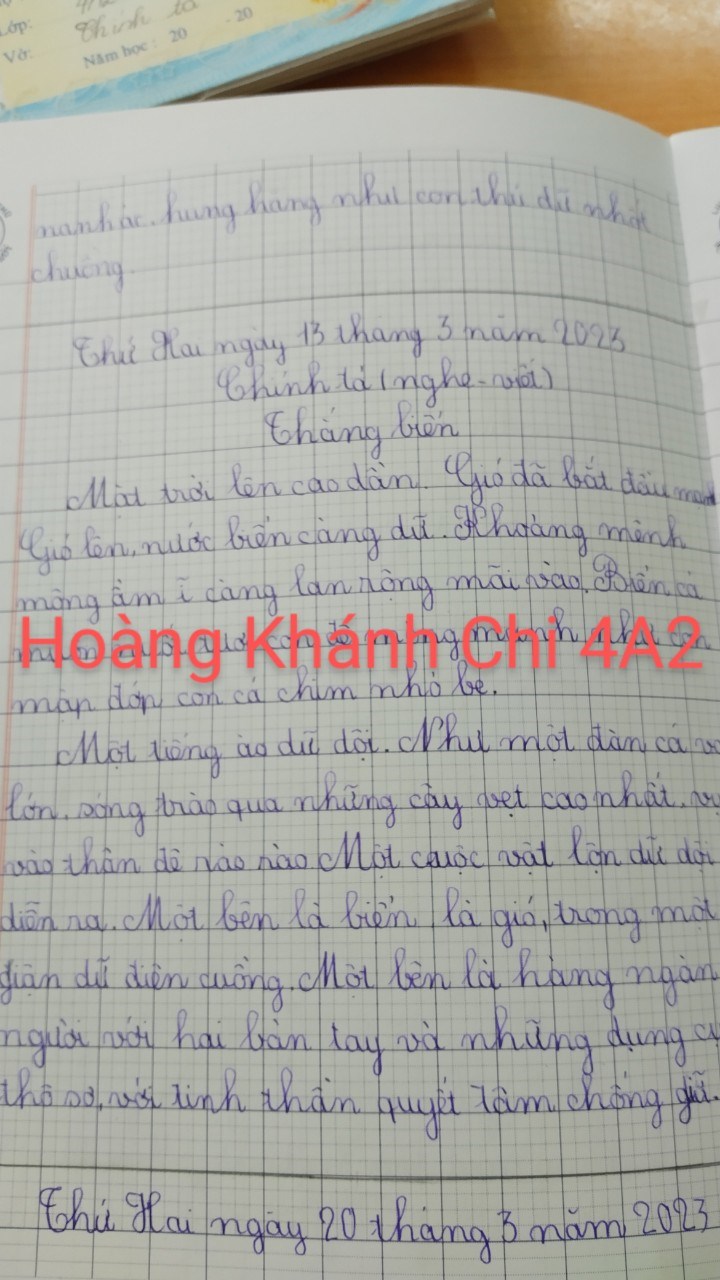 Lớp:
Vở: Chính tả
Năm học: 20 - 20
nanh ác. hung hăng như con thú dữ nhốt
chuồng.
Thứ Hai ngày 13 tháng 3 năm 2023
Chính tả (nghe-viết)
Thắng biển
Mặt trời lên cao dần. Gió đã bắt đầu mạnh
Gió lên, nước biển càng dữ. Khoảng mênh
mông ầm ĩ càng lan rộng mãi vào. Biển cả
con đê mỏng manh như con
Hoàng Khánh Chi 4A2
mập đớp con cá chim nhỏ bé.
Một tiếng ào dữ dội. Như một đàn cá vo
lớn. sóng trào qua những cây vẹt cao nhất. vụ
vào thân đê rào rào Một cuộc vật lộn dữ dội
diễn ra. Một bên là biển, là gió, trong một
giận dữ điên cuồng. Một bên là hàng ngàn
người với hai bàn tay và những dụng cụ
thô sơ, với tinh thần quyết tâm chống giữ.
Thứ Hai ngày 20 tháng 3 năm 2023